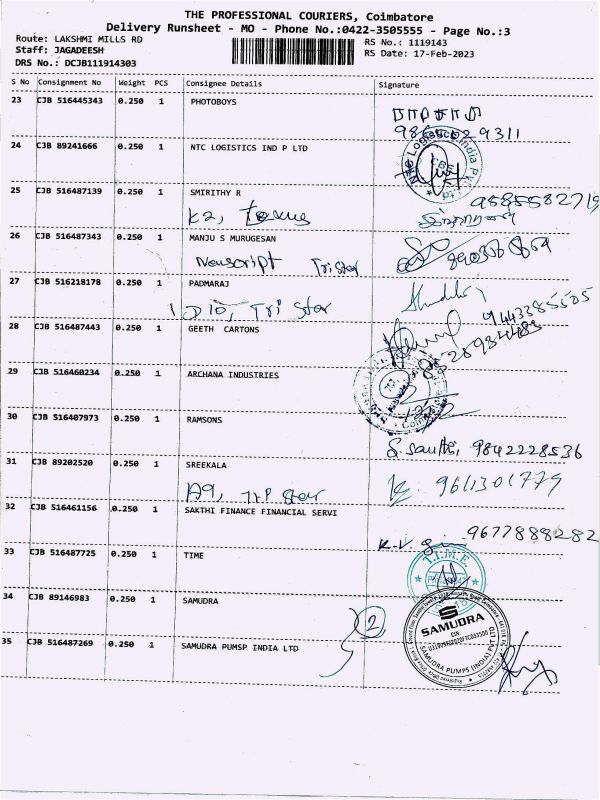 THE PROFESSIONAL COURIERS, Coimbatore
Delivery Runsheet - MO - Phone No.:0422-3505555 - Page No.:3
Route: LAKSHMI MILLS RD
RS No.: 1119143
Staff: JAGADEESH
RS Date: 17-Feb-2023
DRS No.: DCJB111914303
S No Consignment No Weight PCS Consignee Details Signature
23 CJB 516445343 0.250 1 PHOTOBOYS
24 CJB 89241666 0.250 1 NTC LOGISTICS IND P LTD
25 CJB 516487139 0.250 1 SMIRITHY R
9585582719
K2,
26 CJB 516487343 0.250 1 MANJU S MURUGESAN
Newscript Tristar
27 CJB 516218178 0.250 1 PADMARAJ
D10, Tri Star 9443385505
28 CJB 516487443 0.250 1 GEETH CARTONS
29 CJB 516460234 0.250 1 ARCHANA INDUSTRIES
30 CJB 516407973 0.250 1 RAMSONS
S. Santhi, 9842228536
31 CJB 89202520 0.250 1 SREEKALA
A9, Tri Star 9611301779
32 CJB 516461156 0.250 1 SAKTHI FINANCE FINANCIAL SERVI
K.V. 9677888282
33 CJB 516487725 0.250 1 TIME
T.I.M.E.
34 CJB 89146983 0.250 1 SAMUDRA
2
SAMUDRA
CIN
SAMUDRA PUMPS (INDIA) PVT LTD
35 CJB 516487269 0.250 1 SAMUDRA PUMSP INDIA LTD